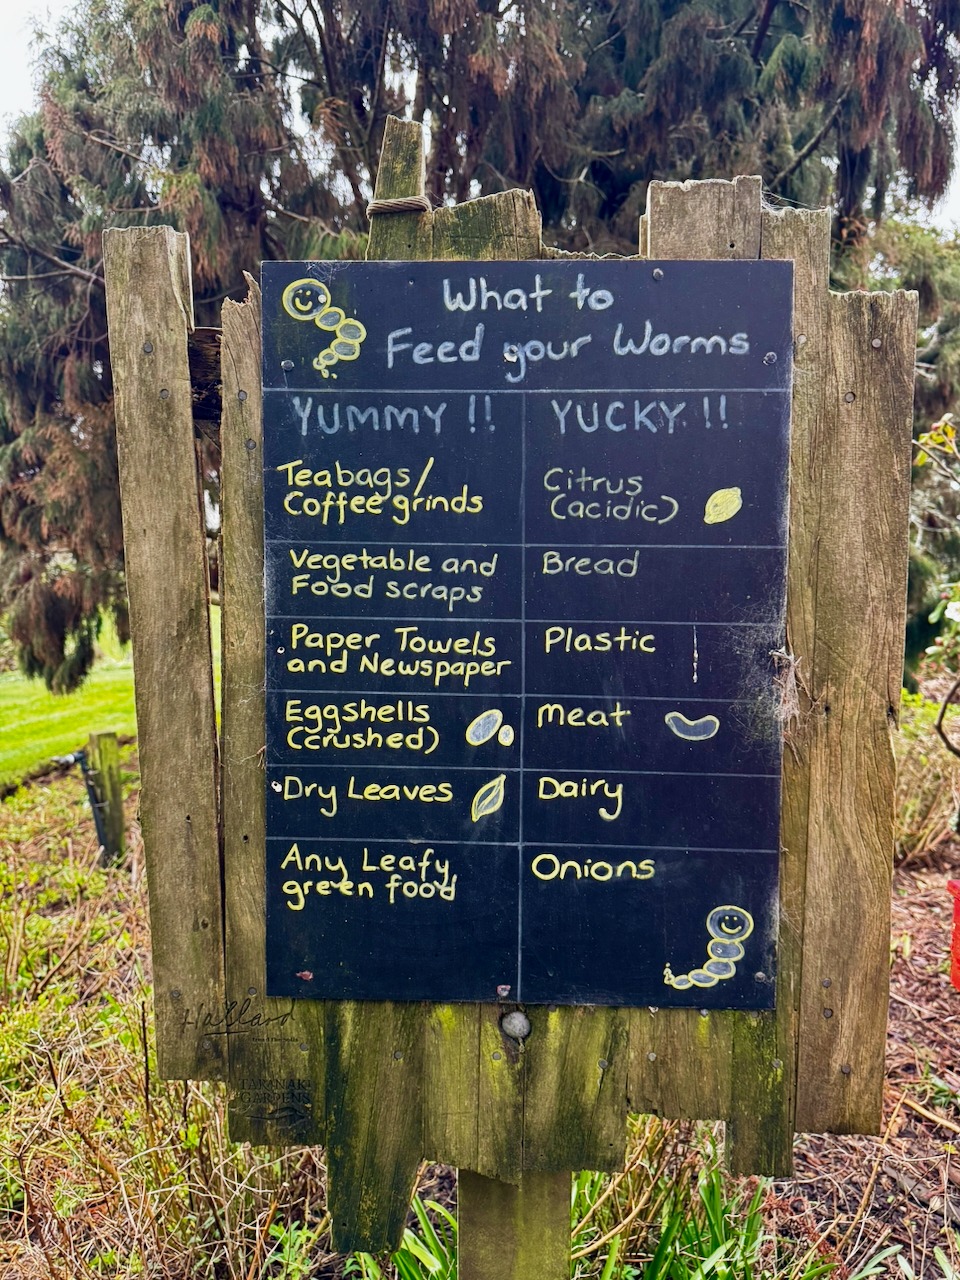 What to
Feed your Worms
YUMMY !!
YUCKY !!
Teabags/
Coffee grinds
Citrus
(acidic)
Vegetable and
Food scraps
Bread
Paper Towels
and Newspaper
Plastic
Eggshells
(crushed)
Meat
Dry Leaves
Dairy
Any Leafy
green food
Onions
Hollard
TARANAKI
GARDENS